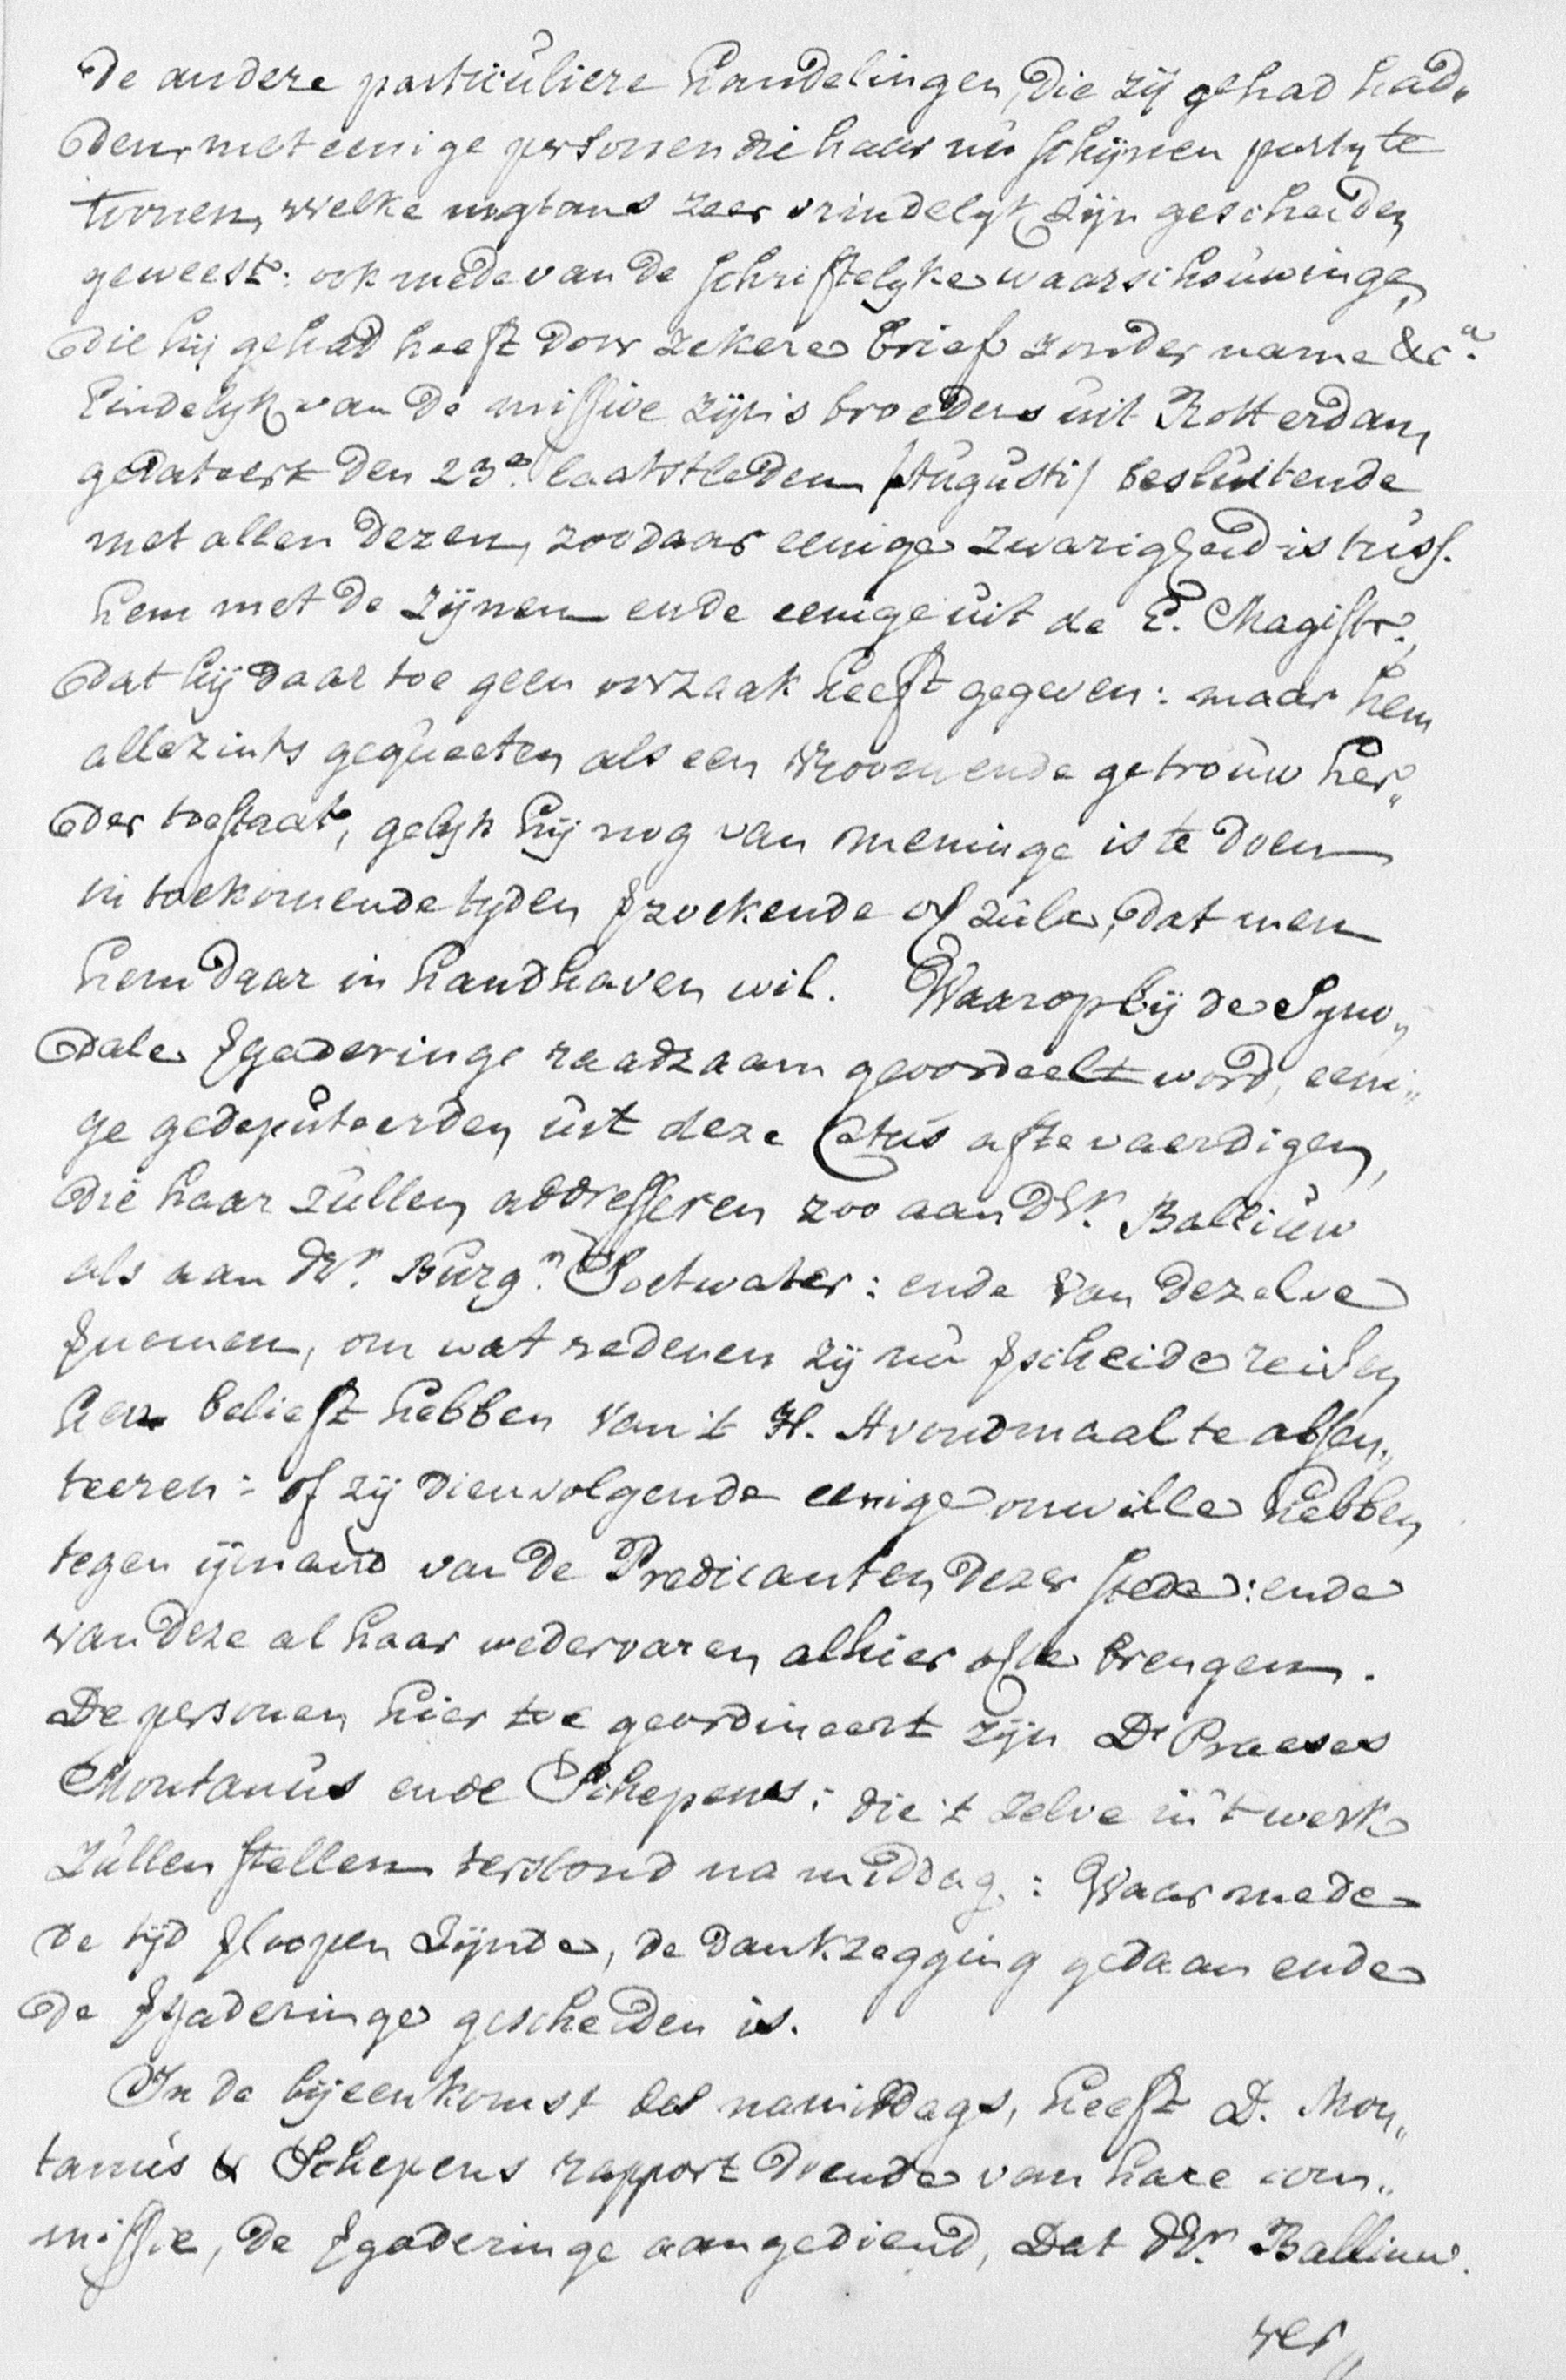 de andere particŭliere handelingen, die zij gehad had„
den, met eenige personen die haar nŭ schijnen party te
toonen, welke nogtans zeer vrindelyk zijn gescheiden
geweest: ook mede van de schriftelyke waarschoŭwinge,
die hij gehad heeft door zekere brief zonder name &c.a
Eindelyk van de missive zijns broeders ŭit Rotterdam,
gedateert den 23.e laatstleden /Aŭgŭsti/ beslŭitende
met allen dezen, zoo daar eenige zwarigheid is tŭss.
hem met de zijnen ende eenige ŭit de E. Magistr.,
dat hij daar toe geen oorzaak heeft gegeven: maar hem
allezints geqŭeeten als een vroom ende getroŭw her„
der toestaat, gelyk hij nog van meninge is te doen
in toekomende tyden, verzoekende of zŭlx, dat men
hem daar in handhaven wil. Waarop bij de Syno„
dale vergaderinge raadzaam geoordeelt word, eeni„
ge gedepŭteerden ŭit deze Cetŭs af te vaerdigen,
die haar zŭllen addresseren zoo aan dHr. Balliŭw
als aan dHr. Bŭrg.r Soetwater: ende van dezelve
vernemen, om wat redenen zij nŭ verscheide reisen
hen belieft hebben van 't H. Avondmaal te absen„
teeren: of zij dienvolgende eenige onwille hebben
tegen ijmand van de Predicanten dezer stede: ende
van deze al haar wedervaren alhier af te brengen.
De personen hier toe geordineert zijn Dr Praeses
Montanŭs ende Schepens: die 't zelve in 't werk
zŭllen stellen terstond na middag: Waar mede
de tijd verloopen zijnde, de dankzegging gedaan ende
de vergaderinge gescheiden is.
In de bijeenkomst des namiddags, heeft D. Mon„
tanŭs & Schepens rapport doende van hare com„
missie, de vergaderinge aangediend, dat dHr. Balliuw
ver„